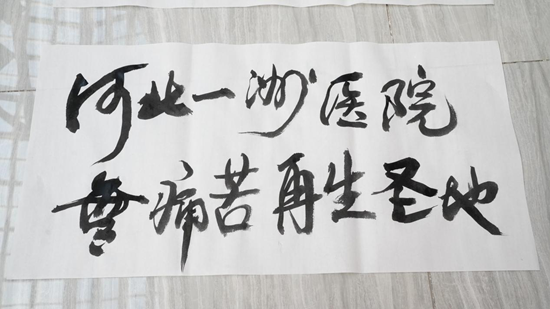 河北一洲医院
無痛苦再生圣地